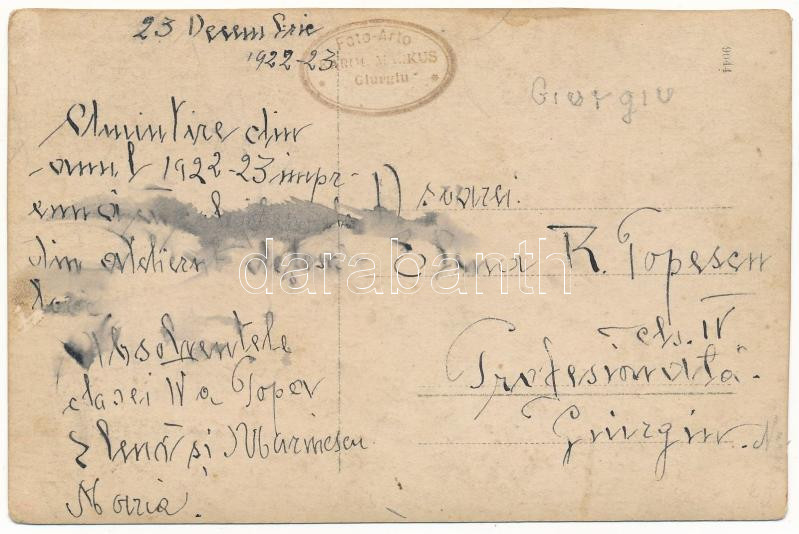 23 Desembrie
1922-23
Foto-Arto
MARKUS
Giurgiu
9644
Giorgiu
Amintire din
anul 1922-23 impr-
eună
din atelieru
Absolventele
clasei IV a Popov
Elena și Marinescu
Maria.
D soarei.
Elena R. Popescu
cls. IV
Profesională.
Giurgiu.
darabanth